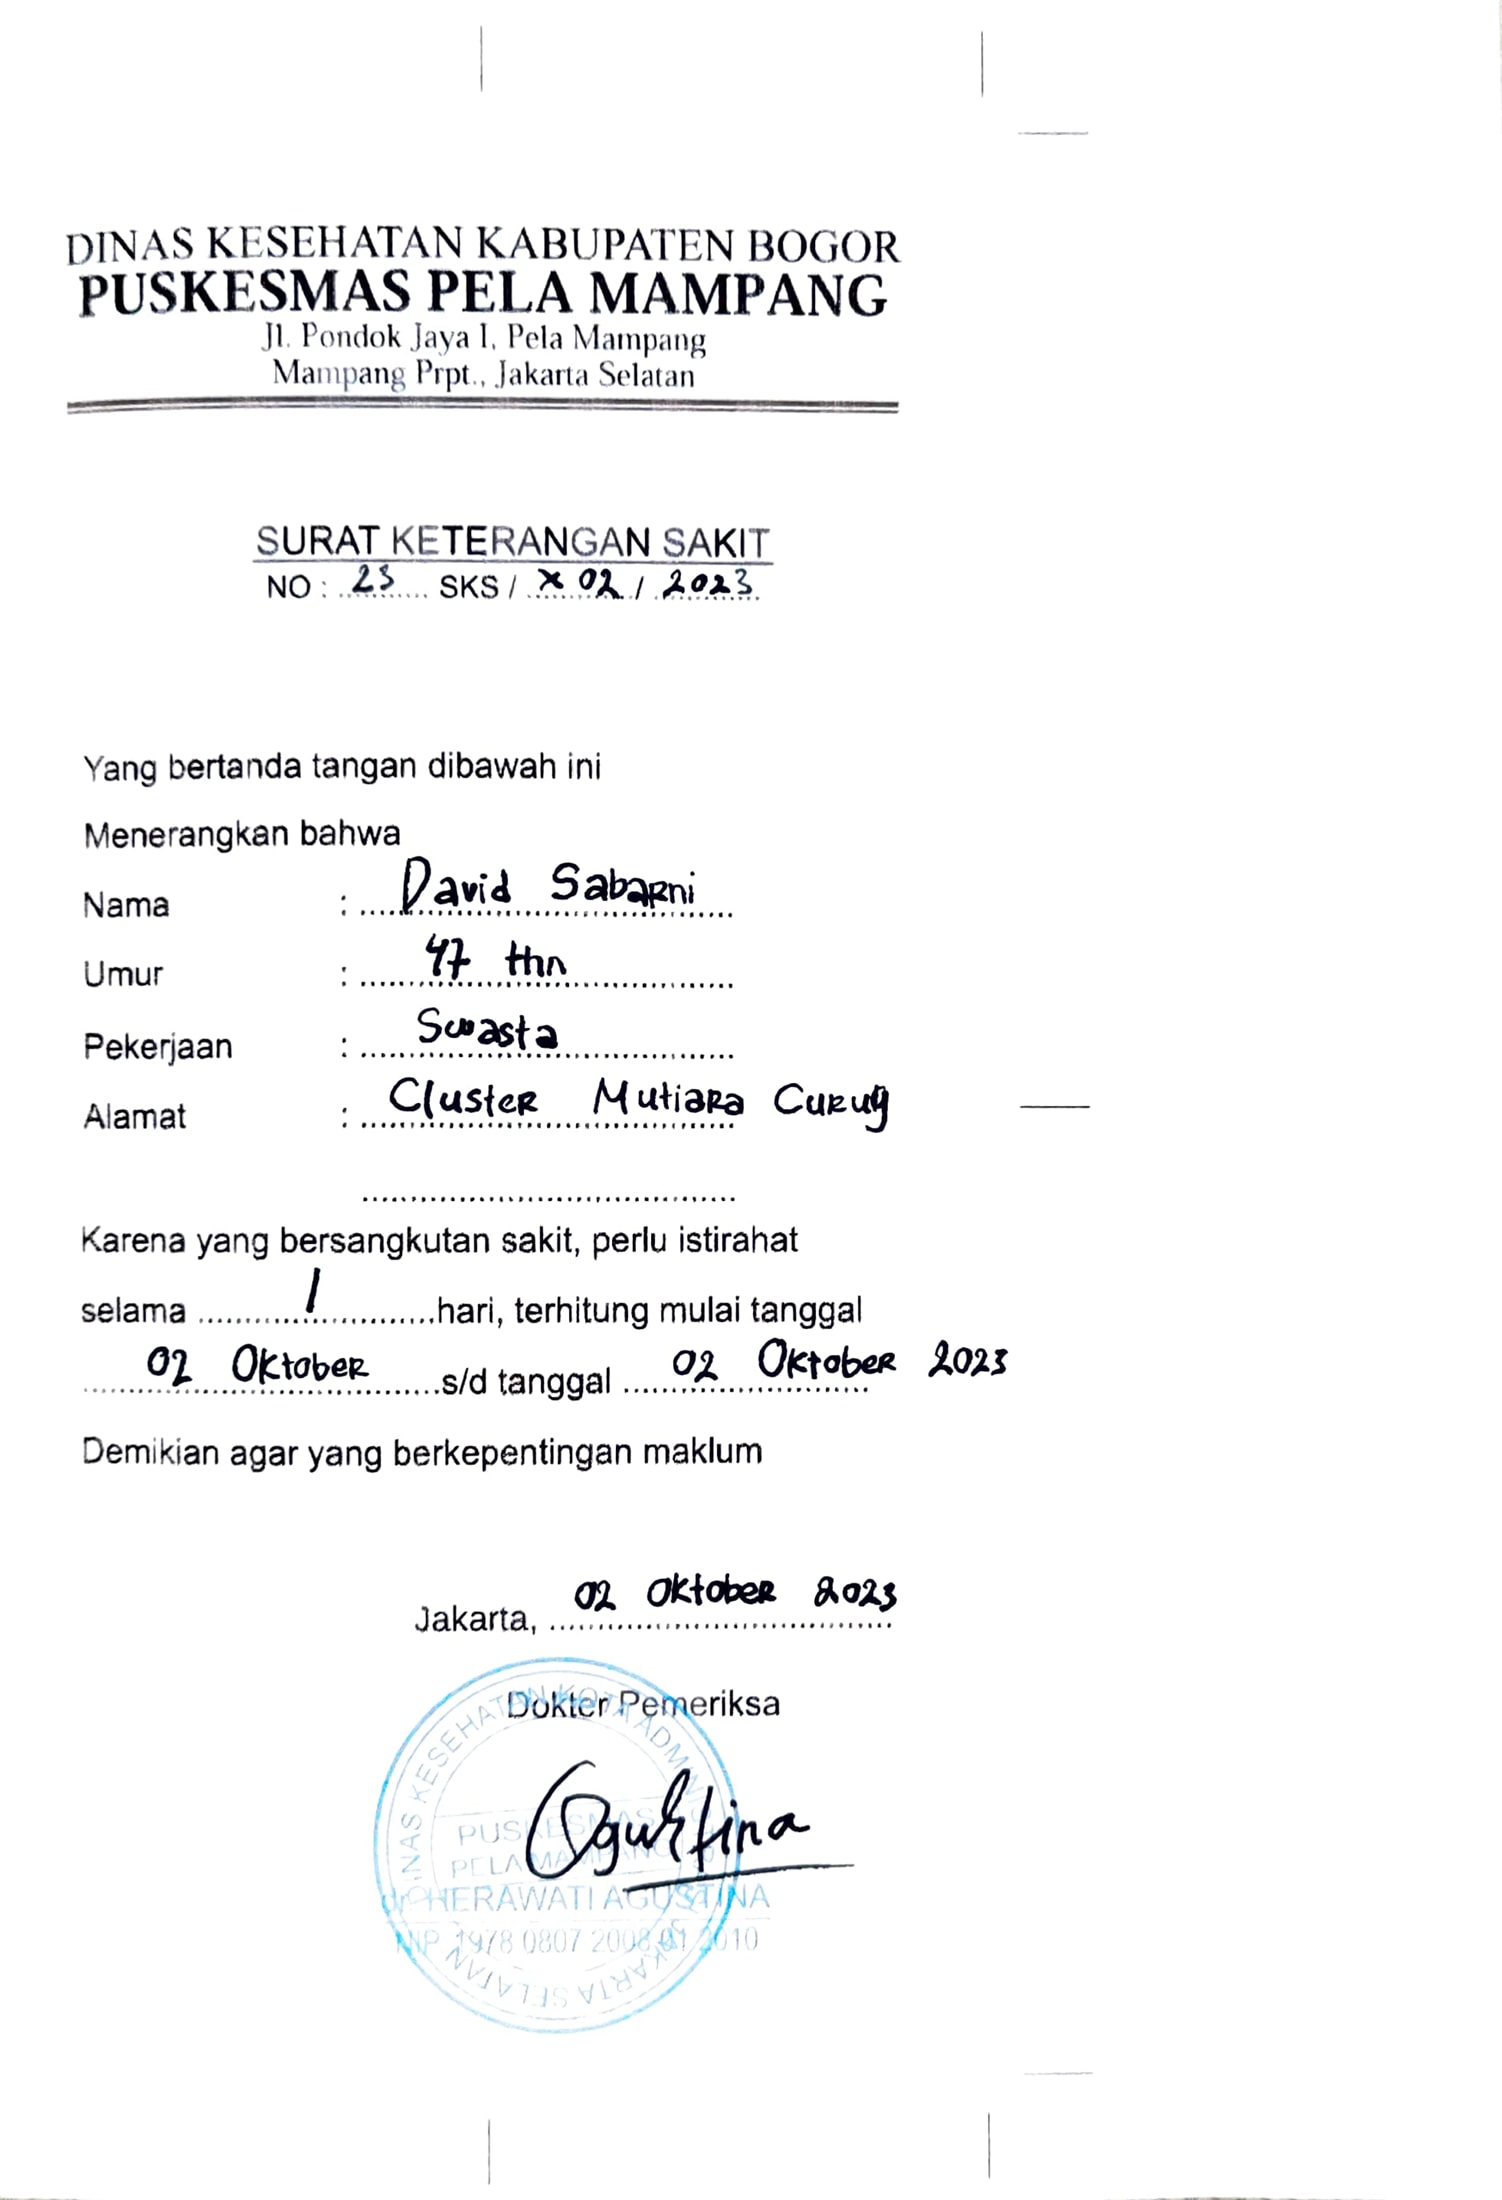 DINAS KESEHATAN KABUPATEN BOGOR
PUSKESMAS PELA MAMPANG
Jl. Pondok Jaya I, Pela Mampang
Mampang Prpt., Jakarta Selatan
SURAT KETERANGAN SAKIT
NO : 23 SKS / X 02 / 2023
Yang bertanda tangan dibawah ini
Menerangkan bahwa
Nama : David Sabarni
Umur : 47 thn
Pekerjaan : Swasta
Alamat : Cluster Mutiara Curug
Karena yang bersangkutan sakit, perlu istirahat
selama 1 hari, terhitung mulai tanggal
02 Oktober s/d tanggal 02 Oktober 2023
Demikian agar yang berkepentingan maklum
Jakarta, 02 Oktober 2023
Dokter Pemeriksa
Agustina
DINAS KESEHATAN KOTA ADMINI
PUSKESMAS
PELA MAMPANG
dr. HERAWATI AGUSTINA
NIP 1978 0807 2008 01 2010
JAKARTA SELATAN